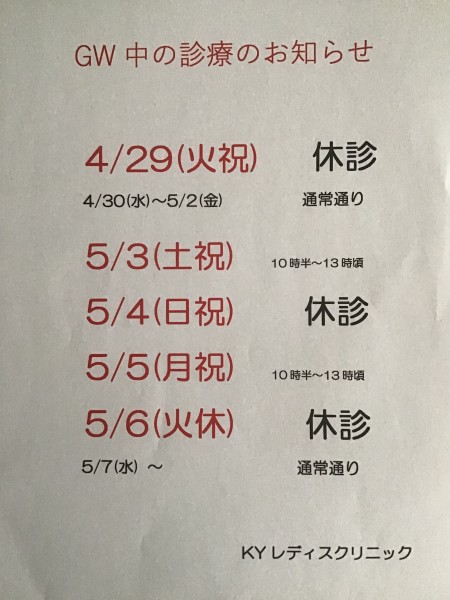 GW 中の診療のお知らせ
4/29(火祝) 休診
4/30(水)～5/2(金) 通常通り
5/3(土祝) 10時半～13時頃
5/4(日祝) 休診
5/5(月祝) 10時半～13時頃
5/6(火休) 休診
5/7(水) ～ 通常通り
KYレディスクリニック